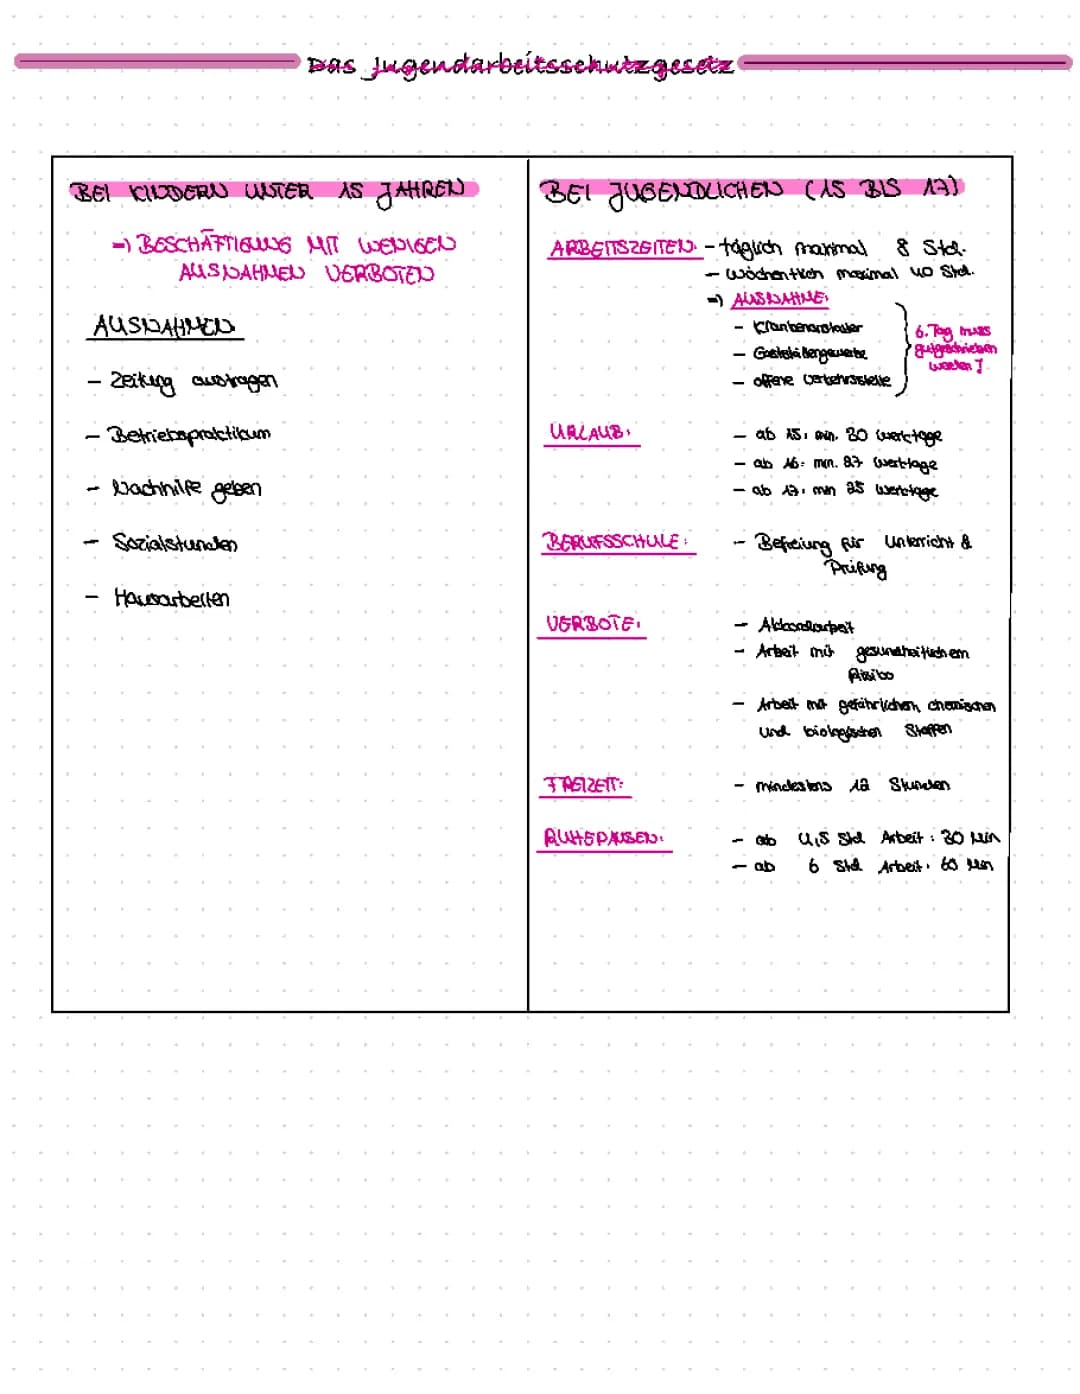 Das Jugendarbeitsschutzgesetz
BEI KINDERN UNTER 15 JAHREN
=) BESCHÄFTIGUNG MIT WENIGEN
AUSNAHMEN VERBOTEN
AUSNAHMEN
- Zeitung austragen
- Betriebspraktikum
- Nachhilfe geben
- Sozialstunden
- Hausarbeiten
BEI JUGENDLICHEN (15 BIS 17)
ARBEITSZEITEN: - täglich maximal 8 Std.
- wöchentlich maximal 40 Std.
=) AUSNAHME:
- Krankenanstalten
- Gaststättengewerbe
- offene Verkehrsstelle
6. Tag muss
gutgeschrieben
werden!
URLAUB: - ab 15: min. 30 Werktage
- ab 16: min. 27 Werktage
- ab 17: min 25 Werktage
BERUFSSCHULE: - Befreiung für Unterricht &
Prüfung
VERBOTE: - Akkordarbeit
- Arbeit mit gesundheitlichem
Risiko
- Arbeit mit gefährlichen, chemischen
und biologischen Stoffen
FREIZEIT: - mindestens 12 Stunden
RUHEPAUSEN: - ab 4,5 Std Arbeit: 30 Min
- ab 6 Std Arbeit: 60 Min